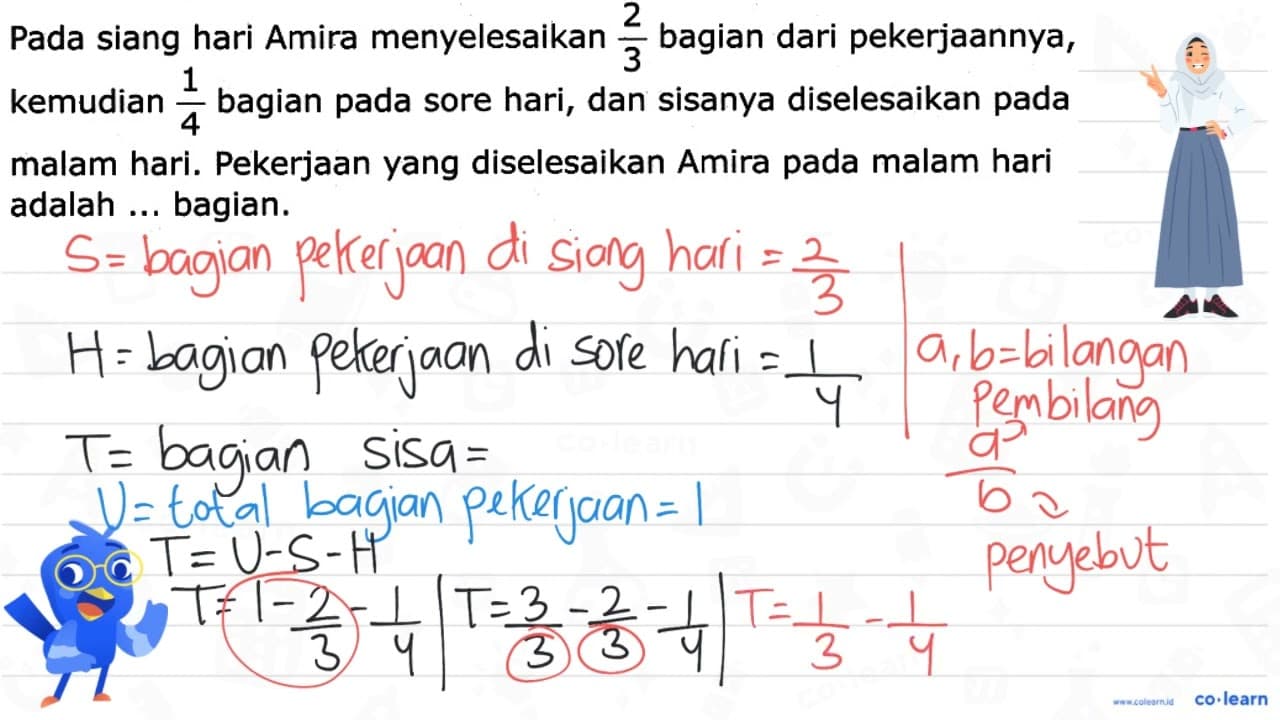 Pada siang hari Amira menyelesaikan 2/3 bagian dari pekerjaannya,
kemudian 1/4 bagian pada sore hari, dan sisanya diselesaikan pada
malam hari. Pekerjaan yang diselesaikan Amira pada malam hari
adalah ... bagian.
S = bagian pekerjaan di siang hari = 2/3
H = bagian pekerjaan di sore hari = 1/4
T = bagian sisa =
U = total bagian pekerjaan = 1
T = U - S - H
T = 1 - 2/3 - 1/4 | T = 3/3 - 2/3 - 1/4 | T = 1/3 - 1/4
a, b = bilangan
pembilang
a/b
penyebut
www.colearn.id co·learn